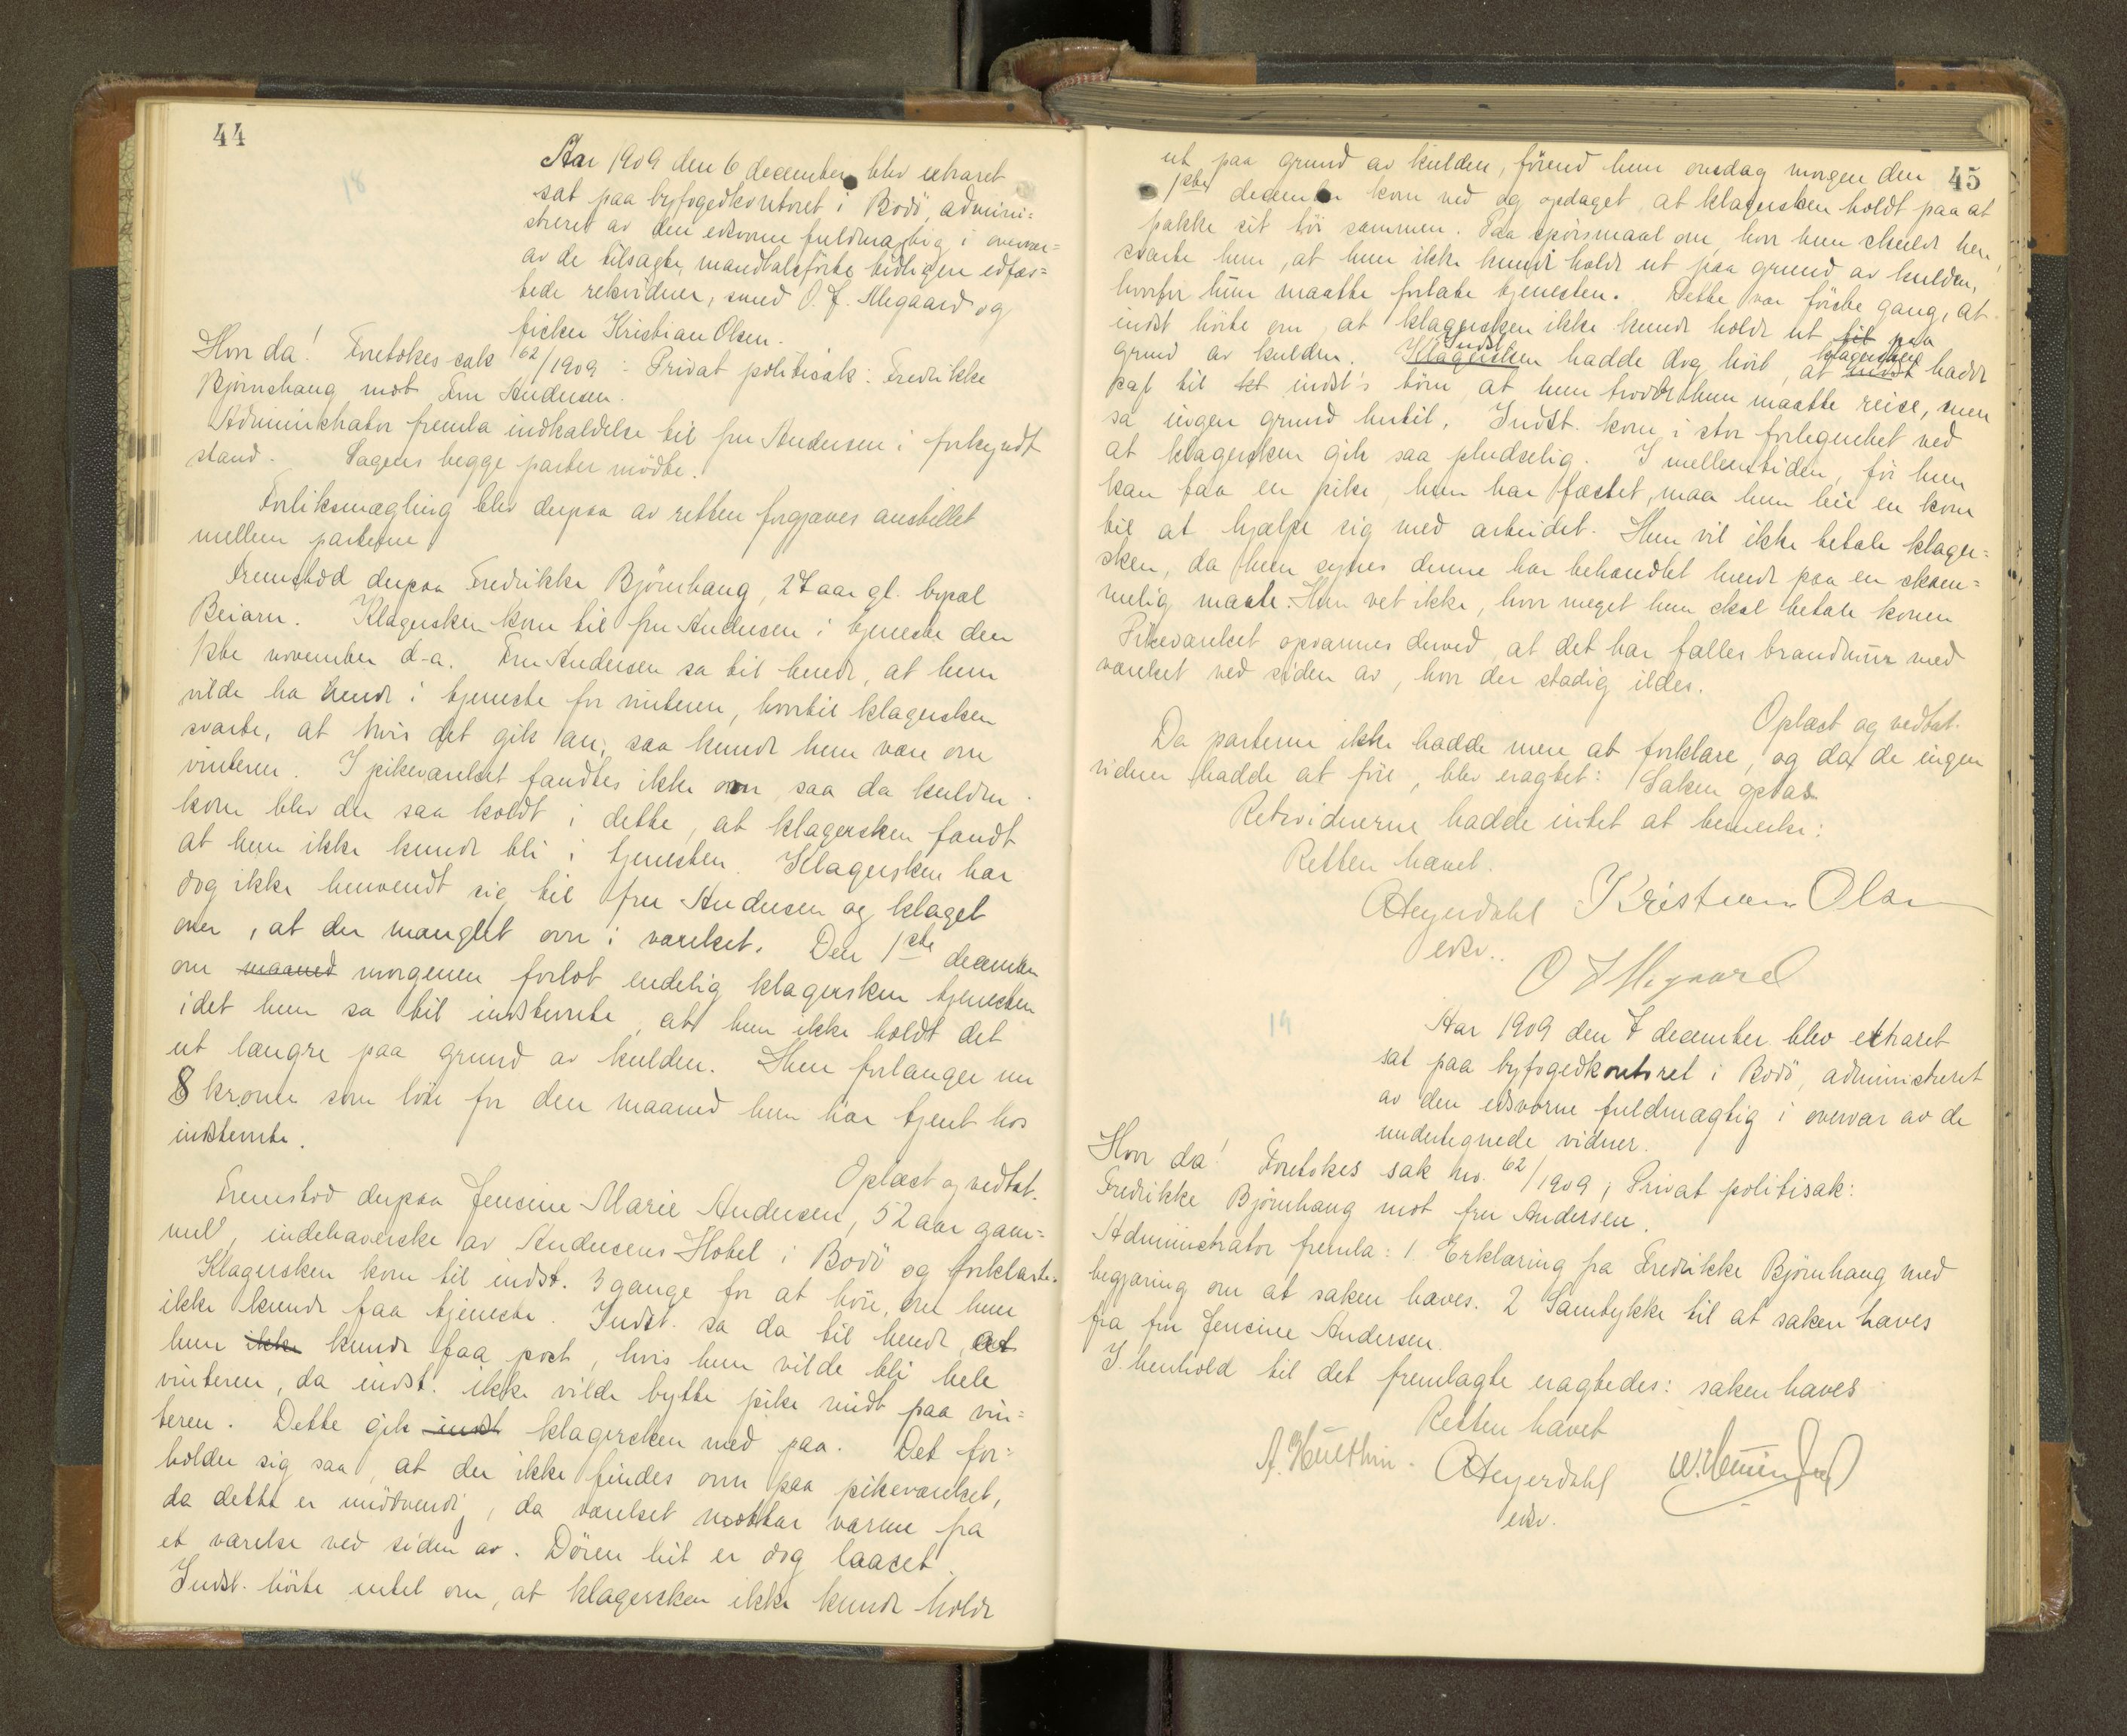 44
18
Aar 1909 den 6 december blev extraret
sat paa byfogedkontoret i Bodö, admini=
streret av den edsvorne fuldmægtig i overvær=
av de tilsagte, mandtalsførte tidligere edfæs=
tede retsvidner, smed O. J. Alegaard og
fisker Kristian Olsen.
Hvor da! Foretokes sak 62/1909: Privat politisak: Fredrikke
Björnhaug mot Fru Andersen.
Administrator fremla indkaldelse til fru Andersen i forkyndt
stand. Sagens begge parter mödte.
Forliksmægling blev derpaa av retten forgjæves anstillet
mellem parterne
Fremstod derpaa Fredrikke Björnhaug, 27 aar gl. bopæl
Beiarn. Klagersken kom til fru Andersen i tjeneste den
1ste november d-a. Fru Andersen sa til hende, at hun
vilde ha hende i tjeneste for vinteren, hvortil klagersken
svarte, at hvis det gik an, saa kunde hun være om
vinteren. I pikeværelset fandtes ikke ovn, saa da kulden
kom blev der saa koldt i dette, at klagersken fandt
at hun ikke kunde bli i tjenesten. Klagersken har
dog ikke henvendt sig til fru Andersen og klaget
over, at der manglet ovn i værelset. Den 1ste december
om maaned morgenen forlot endelig klagersken tjenesten
idet hun sa til indstevnte, at hun ikke holdt det
ut længre paa grund av kulden. Hun forlanger nu
8 kroner som lön for den maaned hun har tjent hos
indstevnte.
Oplæst og vedtat.
Fremstod derpaa Jensine Marie Andersen, 52 aar gam=
mel, indehaverske av Andersens Hotel i Bodö og forklarte.
Klagersken kom til indst. 3 gange for at höre, om hun
ikke kunde faa tjeneste. Indst. sa da til hende, at
hun ikke kunde faa post, hvis hun vilde bli hele
vinteren, da indst. ikke vilde bytte pike midt paa vin=
teren. Dette gik indst klagersken med paa. Det for=
holder sig saa, at der ikke findes ovn paa pikeværelset,
da dette er unödvendi, da værelset mottar varme fra
et værelse ved siden av. Dören hit er dog laaset.
Indst. hörte intet om, at klagersken ikke kunde holde
45
ut paa grund av kulden, förend hun onsdag morgen den
1ste december kom ned og opdaget, at klagersken holdt paa at
pakke sit töi sammen. Paa spörsmaal om, hvor hun skulde hen,
svarte hun, at hun ikke kunde holde ut paa grund av kulden,
hvorfor hun maatte forlate tjenesten. Dette var förste gang, at
indst hörte om, at klagersken ikke kunde holde ut til paa
grund av kulden. Klagersken Indst. hadde dog hört, at indst klagersken hadde
sagt til indst's börn, at hun trodde hun maatte reise, men
sa ingen grund hertil. Indst. kom i stor forlegenhet ved
at klagersken gik saa pludselig. I mellemtiden, för hun
kan faa en pike, hun har fæstet, maa hun leie en kone
til at hjælpe sig med arbeidet. Hun vil ikke betale klager=
sken, da hun synes denne har behandlet hende paa en skam=
melig maate. Hun vet ikke, hvor meget hun skal betale konen
Pikeværelset opvarmes derved, at det har fælles brandmur med
værelset ved siden av, hvor der stadig ildes.
Oplæst og vedtat.
Da parterne ikke hadde mere at forklare, og da de ingen
vidner hadde at före, blev eragtet: Saken optas
Retsvidnerne hadde intet at bemerke:
Retten hævet.
AHeyerdahl Kristian Olsen
edsv..
O J Alegaard
19
Aar 1909 den 7 december blev extraret
sat paa byfogedkontoret i Bodö, administreret
av den edsvorne fuldmægtig i overvær av de
undertegnede vidner.
Hvor da! Foretokes sak no. 62/1909; Privat politisak:
Fredrikke Björnhaug mot fru Andersen.
Administrator fremla: 1 Erklæring fra Fredrikke Björnhaug med
begjæring om at saken hæves. 2 Samtykke til at saken hæves
fra fru Jensine Andersen.
I henhold til det fremlagte eragtedes: saken hæves
Retten hævet
A. Hulthin. AHeyerdahl
edsv.